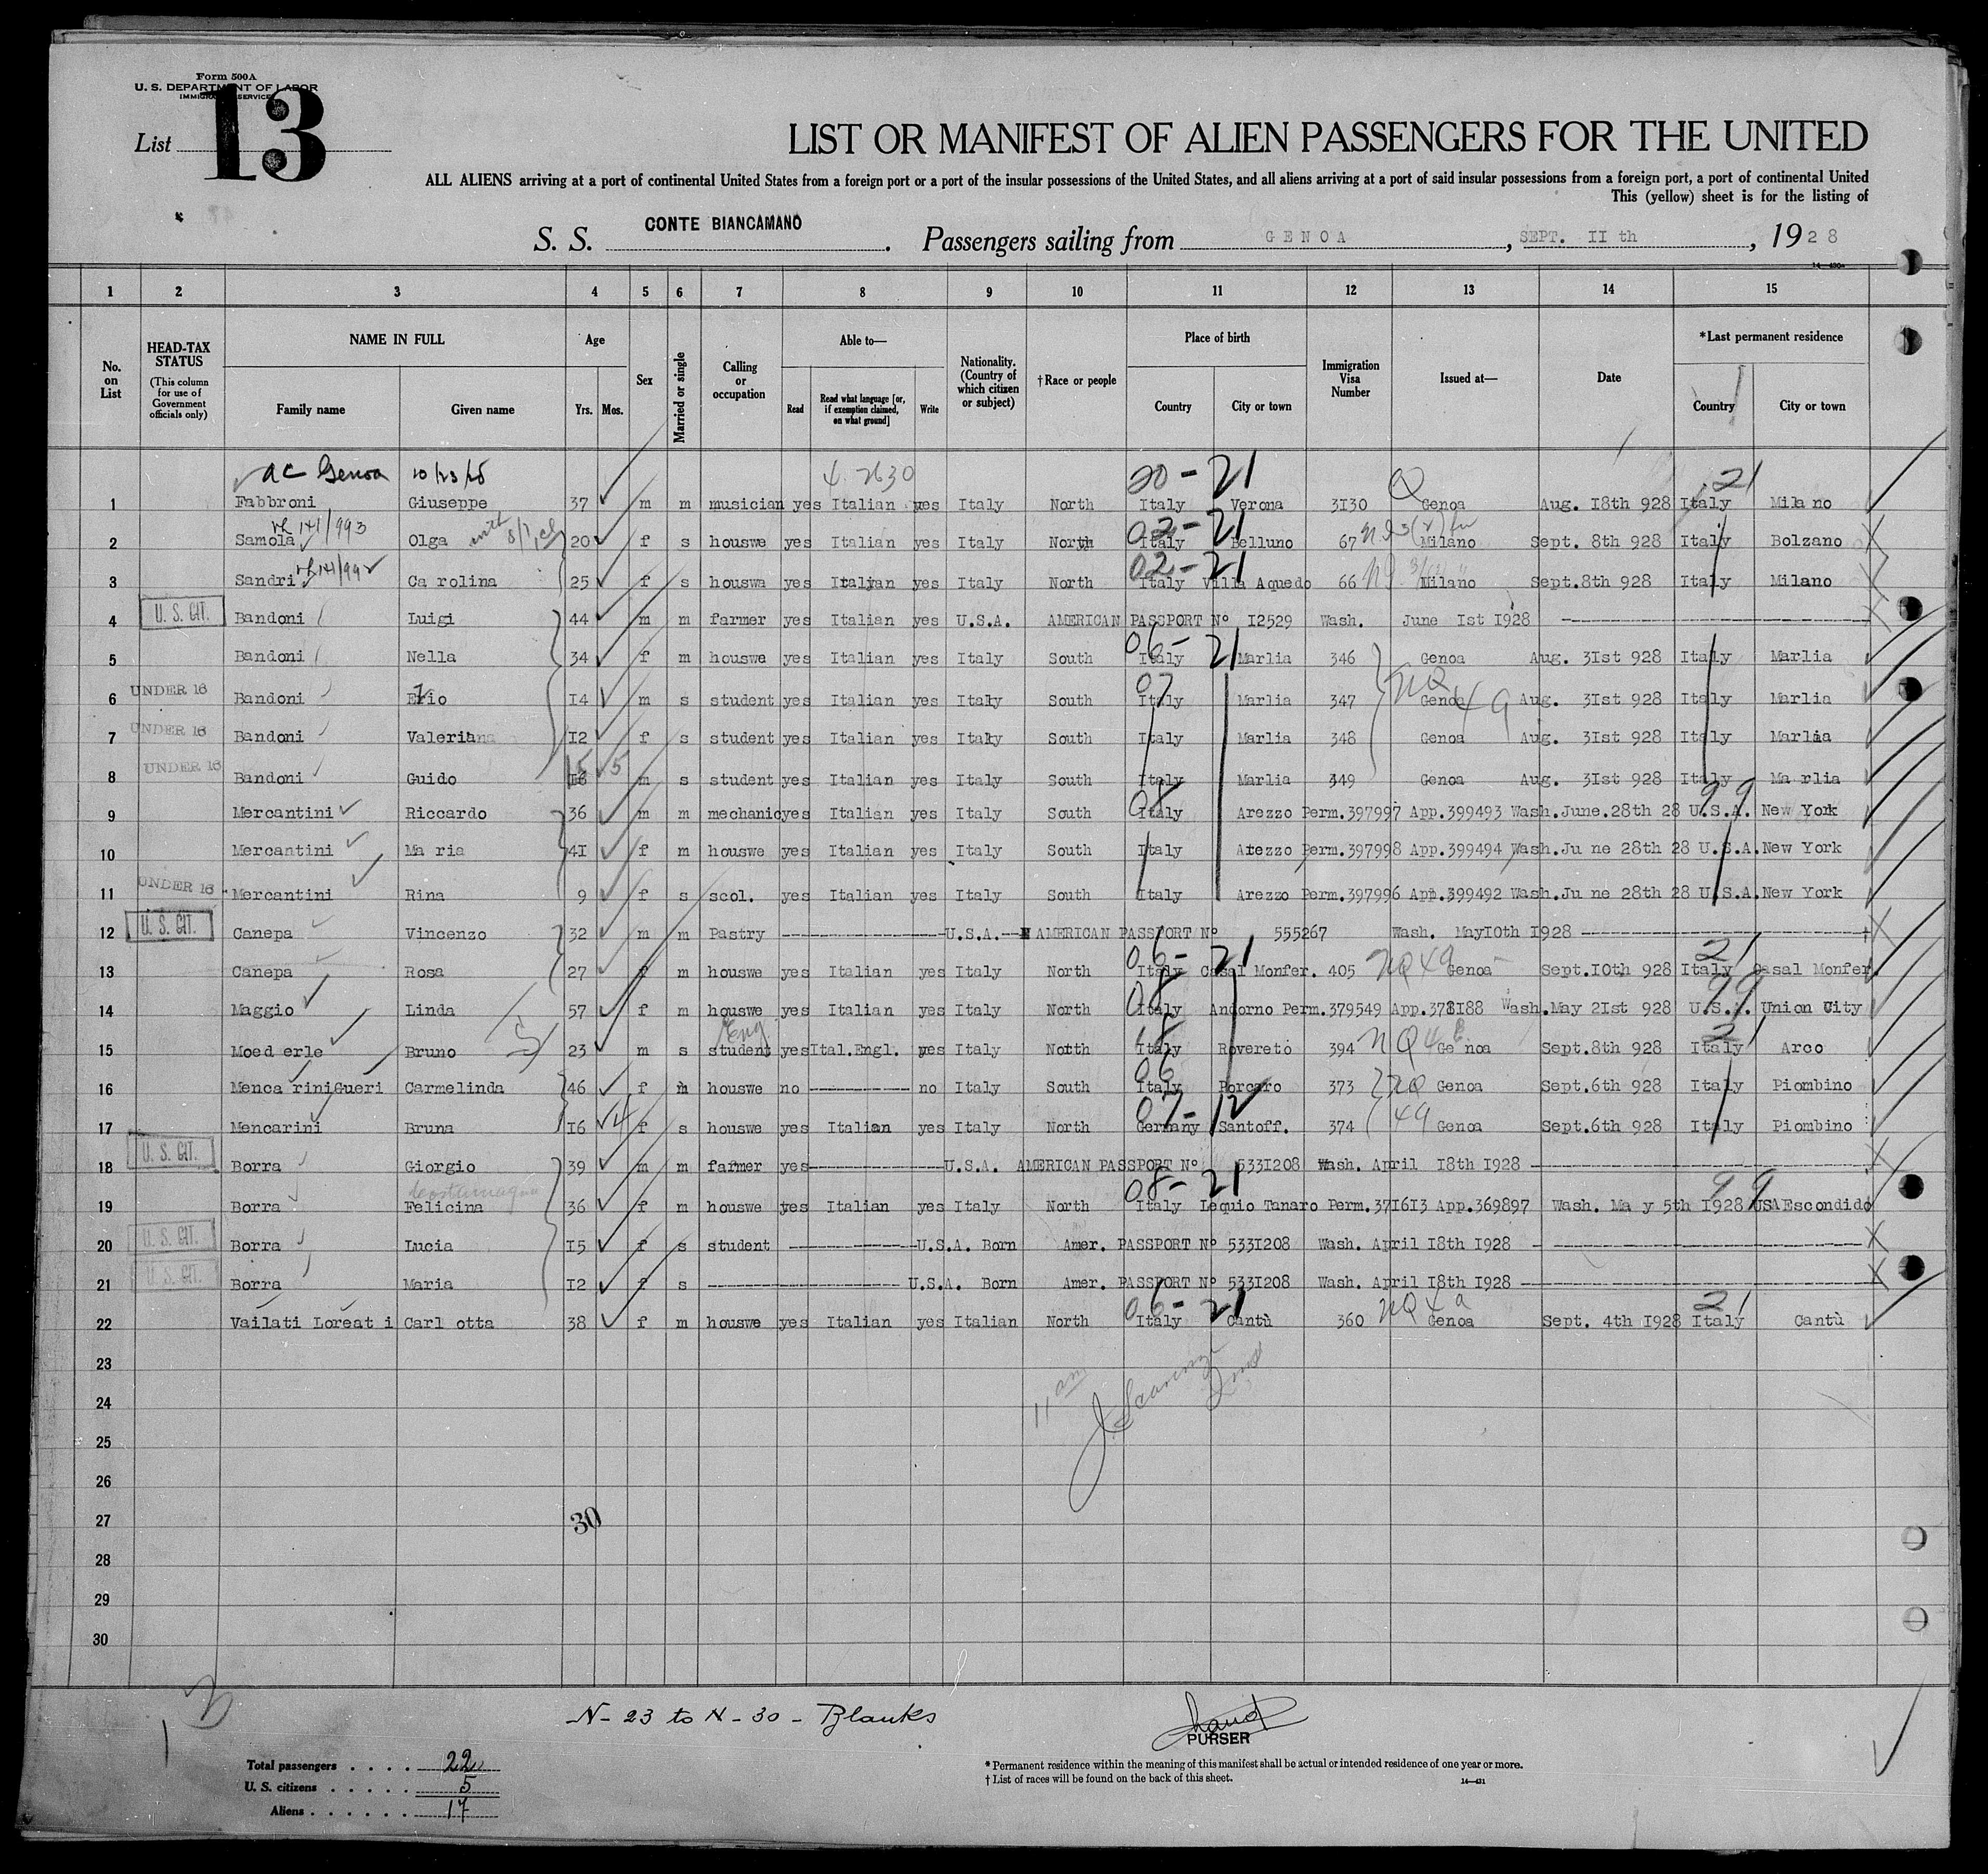 Form 500A
U. S. DEPARTMENT OF LABOR
IMMIGRATION SERVICE
List 13
LIST OR MANIFEST OF ALIEN PASSENGERS FOR THE UNITED
ALL ALIENS arriving at a port of continental United States from a foreign port or a port of the insular possessions of the United States, and all aliens arriving at a port of said insular possessions from a foreign port, a port of continental United
This (yellow) sheet is for the listing of
S. S. CONTE BIANCAMANO. Passengers sailing from GENOA, SEPT. II th, 1928
1 2 3 4 5 6 7 8 9 10 11 12 13 14 15
No. on List
HEAD-TAX STATUS (This column for use of Government officials only)
NAME IN FULL
Family name Given name
Age
Yrs. Mos.
Sex
Married or single
Calling or occupation
Able to—
Read Read what language [or, if exemption claimed, on what ground] Write
Nationality. (Country of which citizen or subject)
†Race or people
Place of birth
Country City or town
Immigration Visa Number
Issued at—
Date
*Last permanent residence
Country City or town
ac Genoa 10/23/25 4. 2630 20 - 21 Q 21
1 Fabbroni Giuseppe 37 m m musician yes Italian yes Italy North Italy Verona 3I30 Genoa Aug. I8th 928 Italy Milano
141/993 with 02 - 21
2 Samola Olga 20 f s houswe yes Italian yes Italy North Italy Belluno 67 Milano Sept. 8th 928 Italy Bolzano
141/992 02 - 21
3 Sandri Ca rolina 25 f s houswa yes Italian yes Italy North Italy Villa Aquedo 66 Milano Sept.8th 928 Italy Milano
4 U. S. CIT. Bandoni Luigi 44 m m farmer yes Italian yes U.S.A. AMERICAN PASSPORT Nº I2529 Wash. June Ist I928
06 - 21
5 Bandoni Nella 34 f m houswe yes Italian yes Italy South Italy Marlia 346 Genoa Aug. 3Ist 928 Italy Marlia
07 NQ 49
6 UNDER 16 Bandoni Ezio I4 m s student yes Italian yes Italy South Italy Marlia 347 Genoa Aug. 3Ist 928 Italy Marlia
7 UNDER 16 Bandoni Valeriana I2 f s student yes Italian yes Italy South Italy Marlia 348 Genoa Aug. 3Ist 928 Italy Marlia
15 5
8 UNDER 16 Bandoni Guido I6 m s student yes Italian yes Italy South Italy Marlia 349 Genoa Aug. 3Ist 928 Italy Ma rlia
08 99
9 Mercantini Riccardo 36 m m mechanic yes Italian yes Italy South Italy Arezzo Perm.397997 App.399493 Wash.June.28th 28 U.S.A. New York
10 Mercantini Ma ria 4I f m houswe yes Italian yes Italy South Italy Arezzo Perm.397998 App.399494 Wash.Ju ne 28th 28 U.S.A. New York
11 UNDER 16 Mercantini Rina 9 f s scol. yes Italian yes Italy South Italy Arezzo Perm.397996 App.399492 Wash.Ju ne 28th 28 U.S.A. New York
12 U. S. CIT. Canepa Vincenzo 32 m m Pastry U.S.A. AMERICAN PASSPORT Nº 555267 Wash. MayI0th I928
06 - 21 NQ 49 21
13 Canepa Rosa 27 f m houswe yes Italian yes Italy North Italy Casal Monfer. 405 Genoa Sept.I0th 928 Italy Casal Monfer.
08 99
14 Maggio Linda 57 f m houswe yes Italian yes Italy North Italy Andorno Perm.379549 App.378I88 Wash.May 2Ist 928 U.S.A. Union City
Eng. 18 NQ 4 21
15 Moed erle Bruno 23 m s student yes Ital.Engl. yes Italy North Italy Rovereto 394 Ge noa Sept.8th 928 Italy Arco
06 NQ
16 Menca riniGueri Carmelinda 46 f m houswe no no Italy South Italy Porcaro 373 Genoa Sept.6th 928 Italy Piombino
4 07 - 12 49
17 Mencarini Bruna I6 f s houswe yes Italian yes Italy North Germany Santoff. 374 Genoa Sept.6th 928 Italy Piombino
18 U. S. CIT. Borra Giorgio 39 m m farmer yes U.S.A. AMERICAN PASSPORT Nº 533I208 Wash. April I8th I928
Costamagna 08 - 21 99
19 Borra Felicina 36 f m houswe yes Italian yes Italy North Italy Lequio Tanaro Perm.37I6I3 App.369897 Wash. Ma y 5th I928 USA Escondido
20 U. S. CIT. Borra Lucia I5 f s student U.S.A. Born Amer. PASSPORT Nº 533I208 Wash. April I8th I928
21 U. S. CIT. Borra Maria I2 f s U.S.A. Born Amer. PASSPORT Nº 533I208 Wash. April I8th I928
06 - 21 NQ 4a 21
22 Vailati Loreat i Carl otta 38 f m houswe yes Italian yes Italian North Italy Cantù 360 Genoa Sept. 4th I928 Italy Cantù
23
24
25
26
27 30
28
29
30
N- 23 to N- 30 - Blanks
PURSER
Total passengers 22
U. S. citizens 5
Aliens 17
* Permanent residence within the meaning of this manifest shall be actual or intended residence of one year or more.
† List of races will be found on the back of this sheet.
14—431